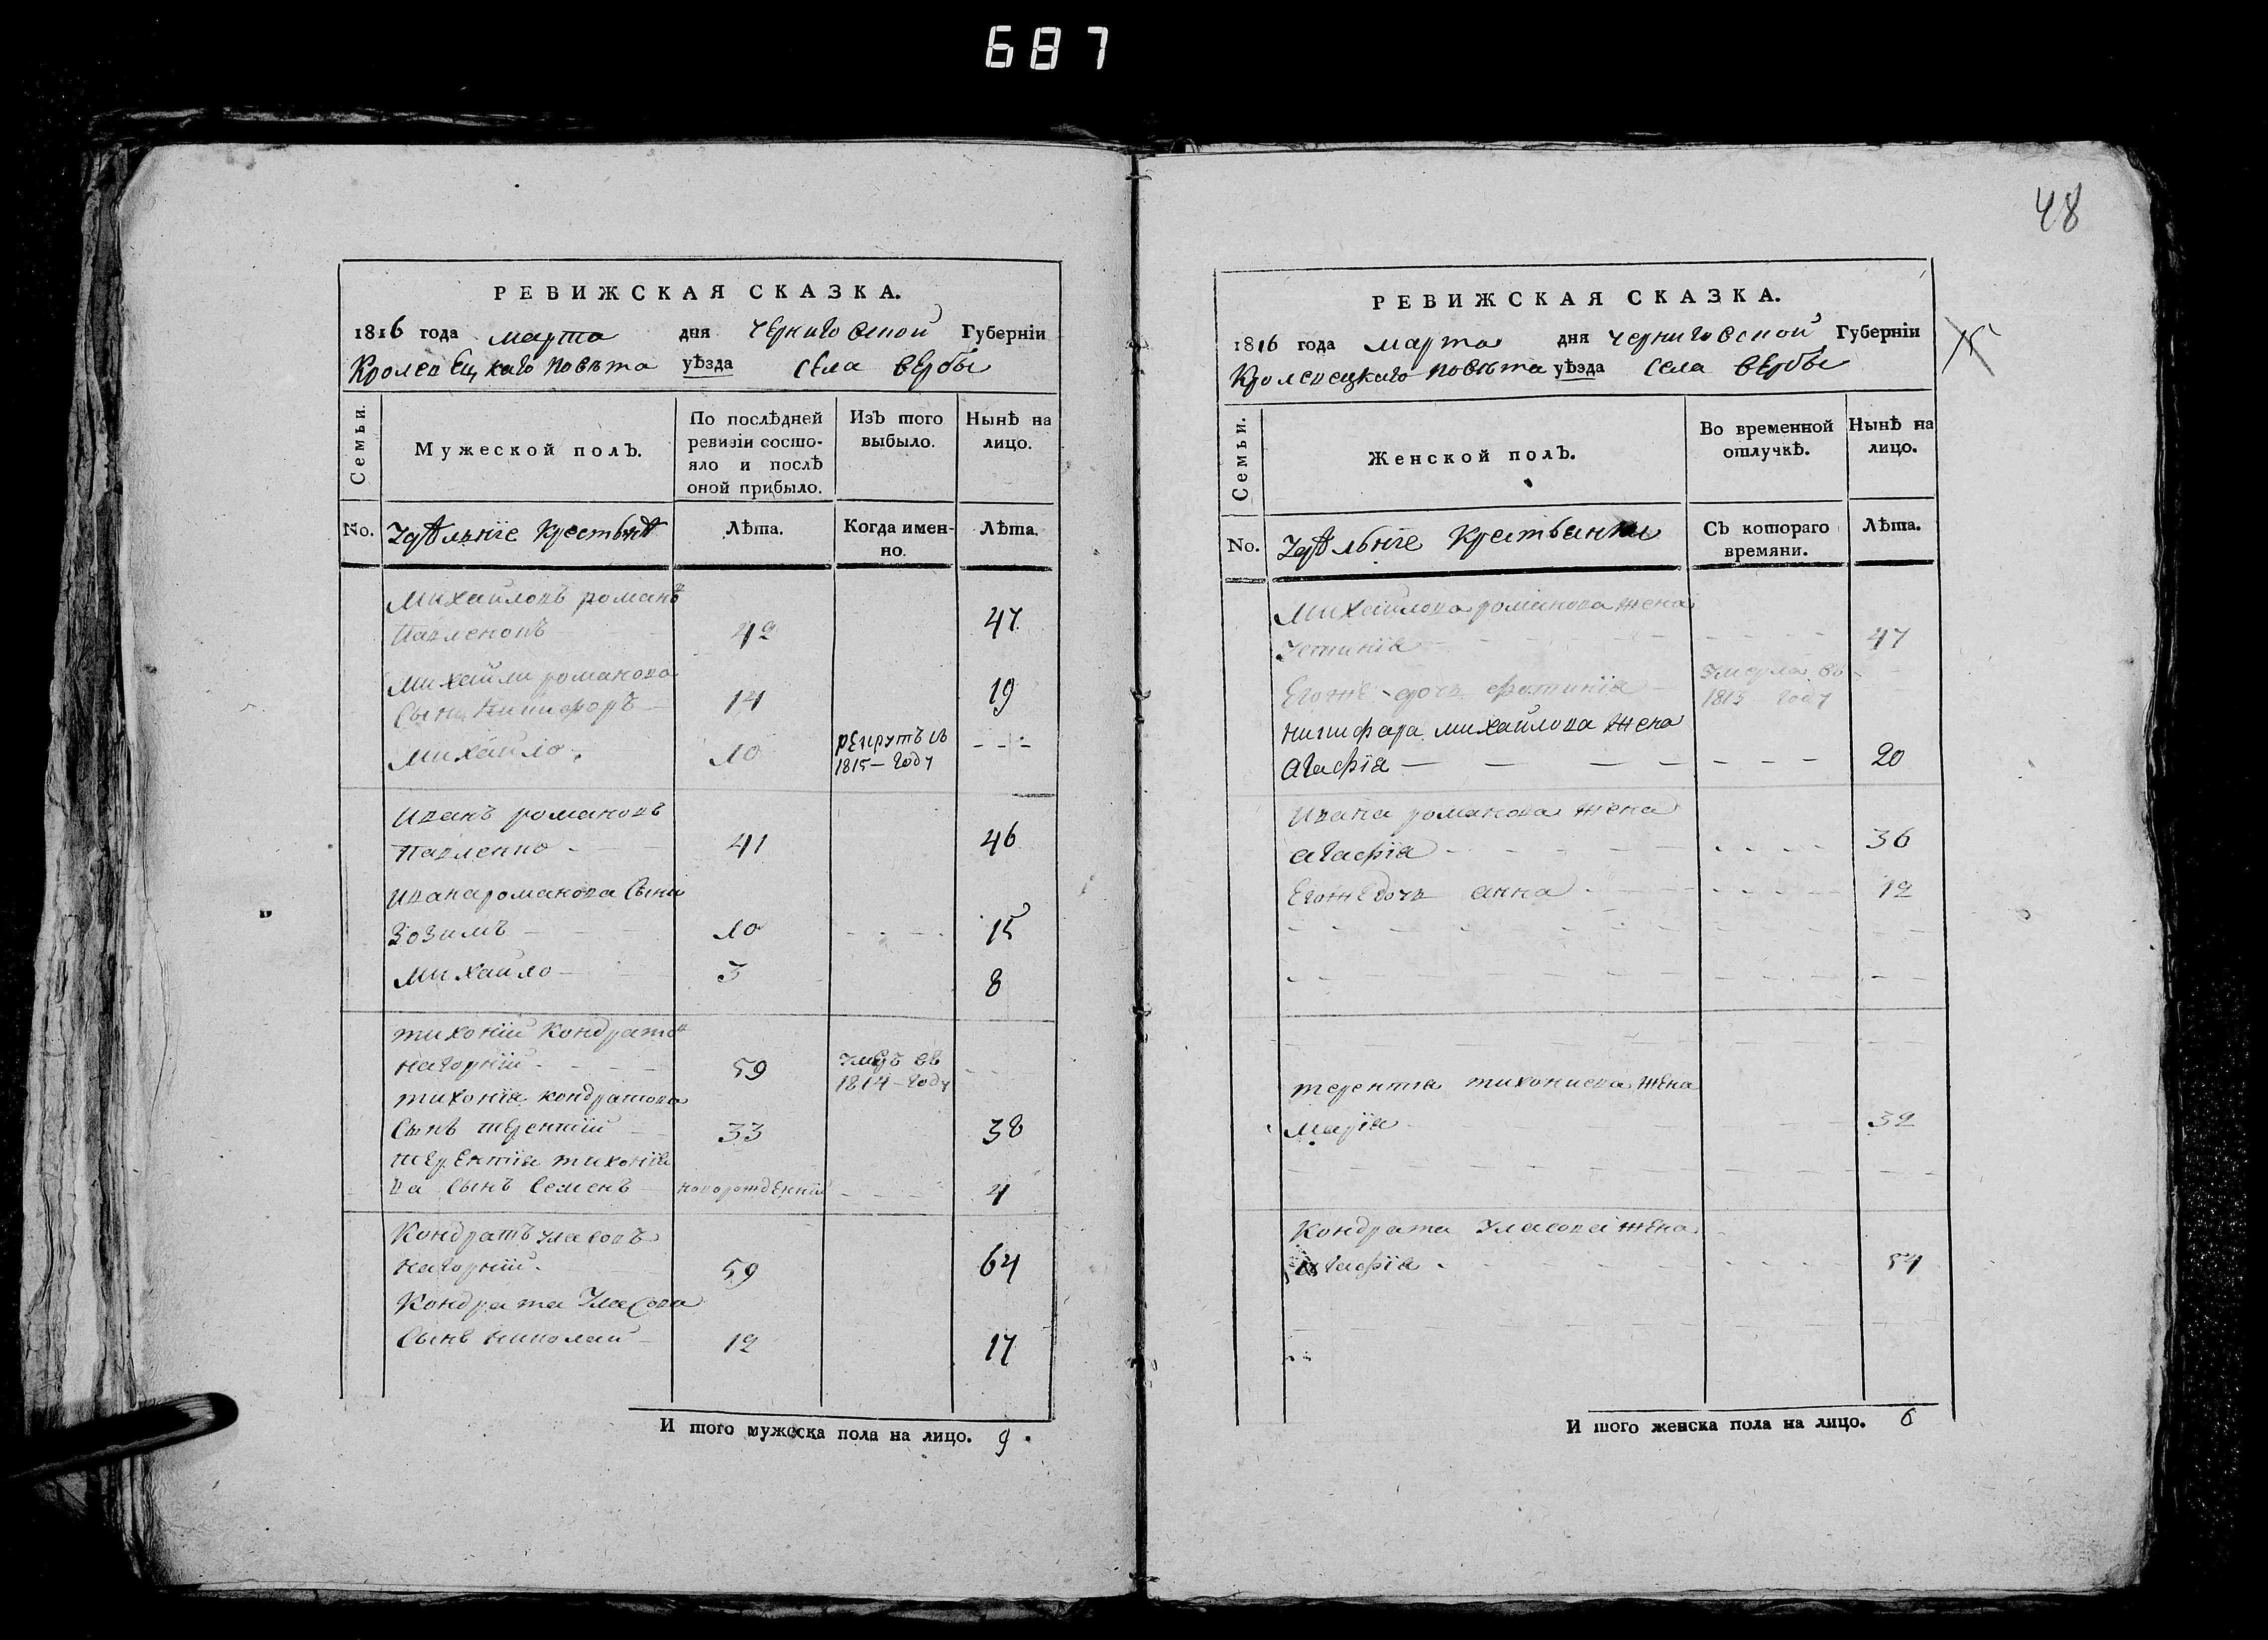 687
РЕВИЖСКАЯ СКАЗКА.
1816 года марта дня черниговской Губерніи
Кролевецкаго повѣта уѣзда села вербы
Семьи.
Мужеской полъ.
По послѣдней
ревизіи состо-
яло и послѣ
оной прибыло.
Изъ того
выбыло.
Нынѣ на
лицо.
No. Удѣльніе Крестьянѣ Лѣта. Когда имен-
но. Лѣта.
Михайловъ романъ
Павленовъ 42 47
Михайли романова
Сынъ Никифоръ 14 19
Михайло 10 рекрутъ въ
1815 - году
Иванъ романовъ
Павленко 41 46
Ивана романова Сыни
Зозимъ 10 15
Михайло 3 8
тихоній Кондратов
Нагорній 59 умеръ въ
1814 - году
тихонія кондратова
Сынъ терентій 33 38
терентія тихоніе
ва Сынъ Семенъ новорожденній 4
Кондратъ Уласовъ
Нагорній 59 64
Кондрата Уласова
Сынъ николай 12 17
И того мужеска пола на лицо. 9.
48
РЕВИЖСКАЯ СКАЗКА.
1816 года марта дня черниговской Губерніи
Кролевецкаго повѣта уѣзда села вербы
15
Семьи.
Женской полъ.
Во временной
отлучкѣ.
Нынѣ на
лицо.
No. Удѣльніе Крестьянки Съ котораго
времяни. Лѣта.
Михайлова романова жена
Устинія 47
Егоже доч фотинія умерла въ
1813 году
Никифора михайлова жена
агафія 20
Ивана романова жена
агафія 36
Егоже доч анна 12
терентія тихониева жена
Марія 32
Кондрата Уласова жена
агафія 54
И того женска пола на лицо. 6